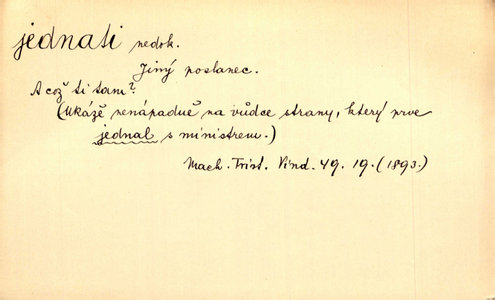 jednati nedok.
Jiný poslanec.
A což ti tam?
(Ukáže nenápadně na vůdce strany, který prve
jednal s ministrem.)
Mach. Trist. Vind. 49. 19. (1893.)